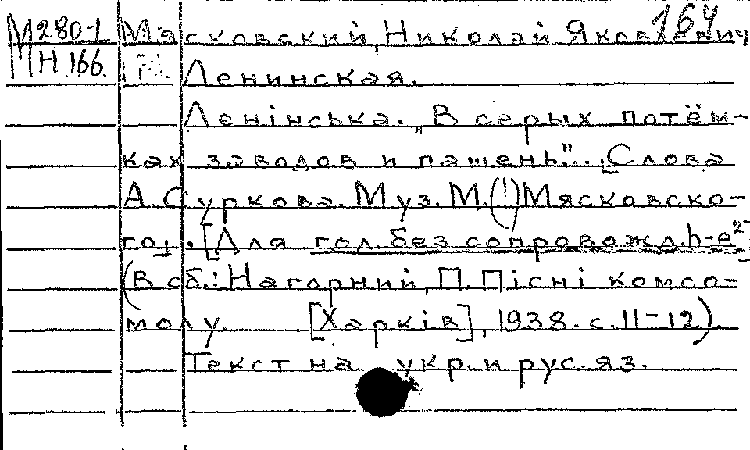 164
М280-1 Мясковский, Николай Яковлевич
Н.166. Ленинская.
Ленінська. „В серых потём-
ках заводов и пашень"... Слова
А. Суркова. Муз. М.(!) Мясковско-
го. [Для гол. без сопровожд. h-e²-]
(В сб.: Нагорний, П. Пісні комсо-
молу. [Харків], 1938. с. 11-12).
Текст на укр. и рус. яз.